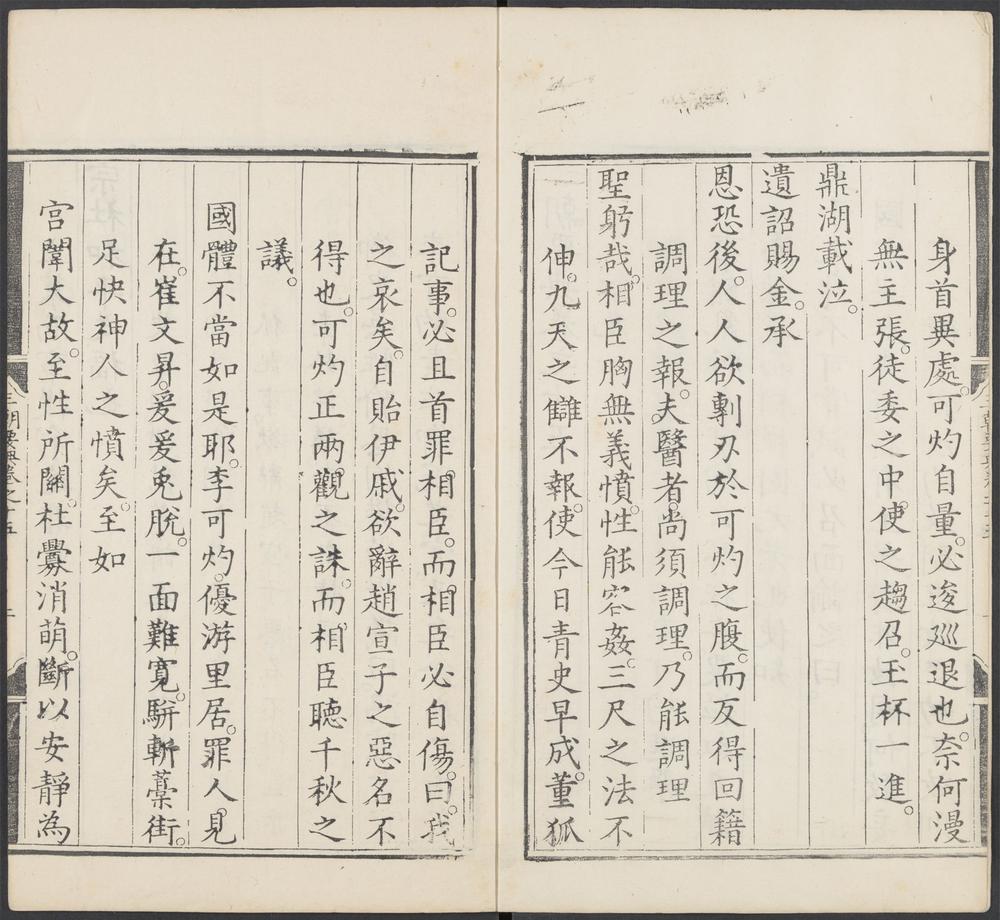 身首異處。可灼自量。必逡廵退也。奈何漫
無主張。徒委之中。使之趨召。玉杯一進。
鼎湖載泣。
遺詔賜金。承
恩恐後。人人欲剚刃於可灼之腹。而反得回籍
調理之報。夫醫者。尚須調理。乃能調理
聖躬哉。相臣胸無義憤。性能容姦。三尺之法不
伸。九天之讎不報。使今日青史早成。董狐
記事。必且首罪相臣。而相臣必自傷。曰。我
之哀矣。自貽伊戚。欲辭趙宣子之惡名不
得也。可灼正兩觀之誅。而相臣聽千秋之
議。
國體不當如是耶。李可灼。優游里居。罪人。見
在。崔文昇。爰爰兎脫。一面難寬。駢斬藁街。
足快神人之憤矣。至如
宮闈大故。至性所關。杜釁消萌。斷以安靜為
三朝要典卷之十五